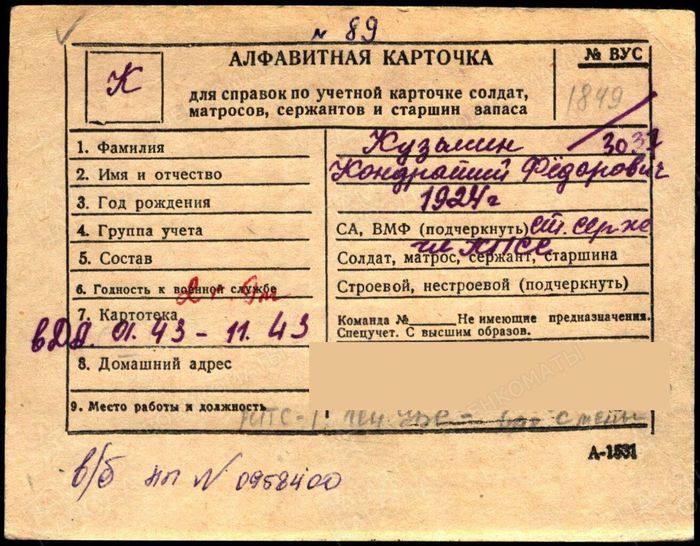 № 89
АЛФАВИТНАЯ КАРТОЧКА
№ ВУС
К
для справок по учетной карточке солдат,
матросов, сержантов и старшин запаса
1849
1. Фамилия
Кузьмин
2. Имя и отчество
Кондратий Фёдорович
3. Год рождения
1924 г
4. Группа учета
СА, ВМФ (подчеркнуть) ст. серже
5. Состав
чл КПСС
Солдат, матрос, сержант, старшина
6. Годность к военной службе
Строевой, нестроевой (подчеркнуть)
7. Картотека
Команда № Не имеющие предназначения.
Спецучет. С высшим образов.
в ДА. 01.43 - 11.43
8. Домашний адрес
9. Место работы и должность
А-1531
в/б нп № 0958400